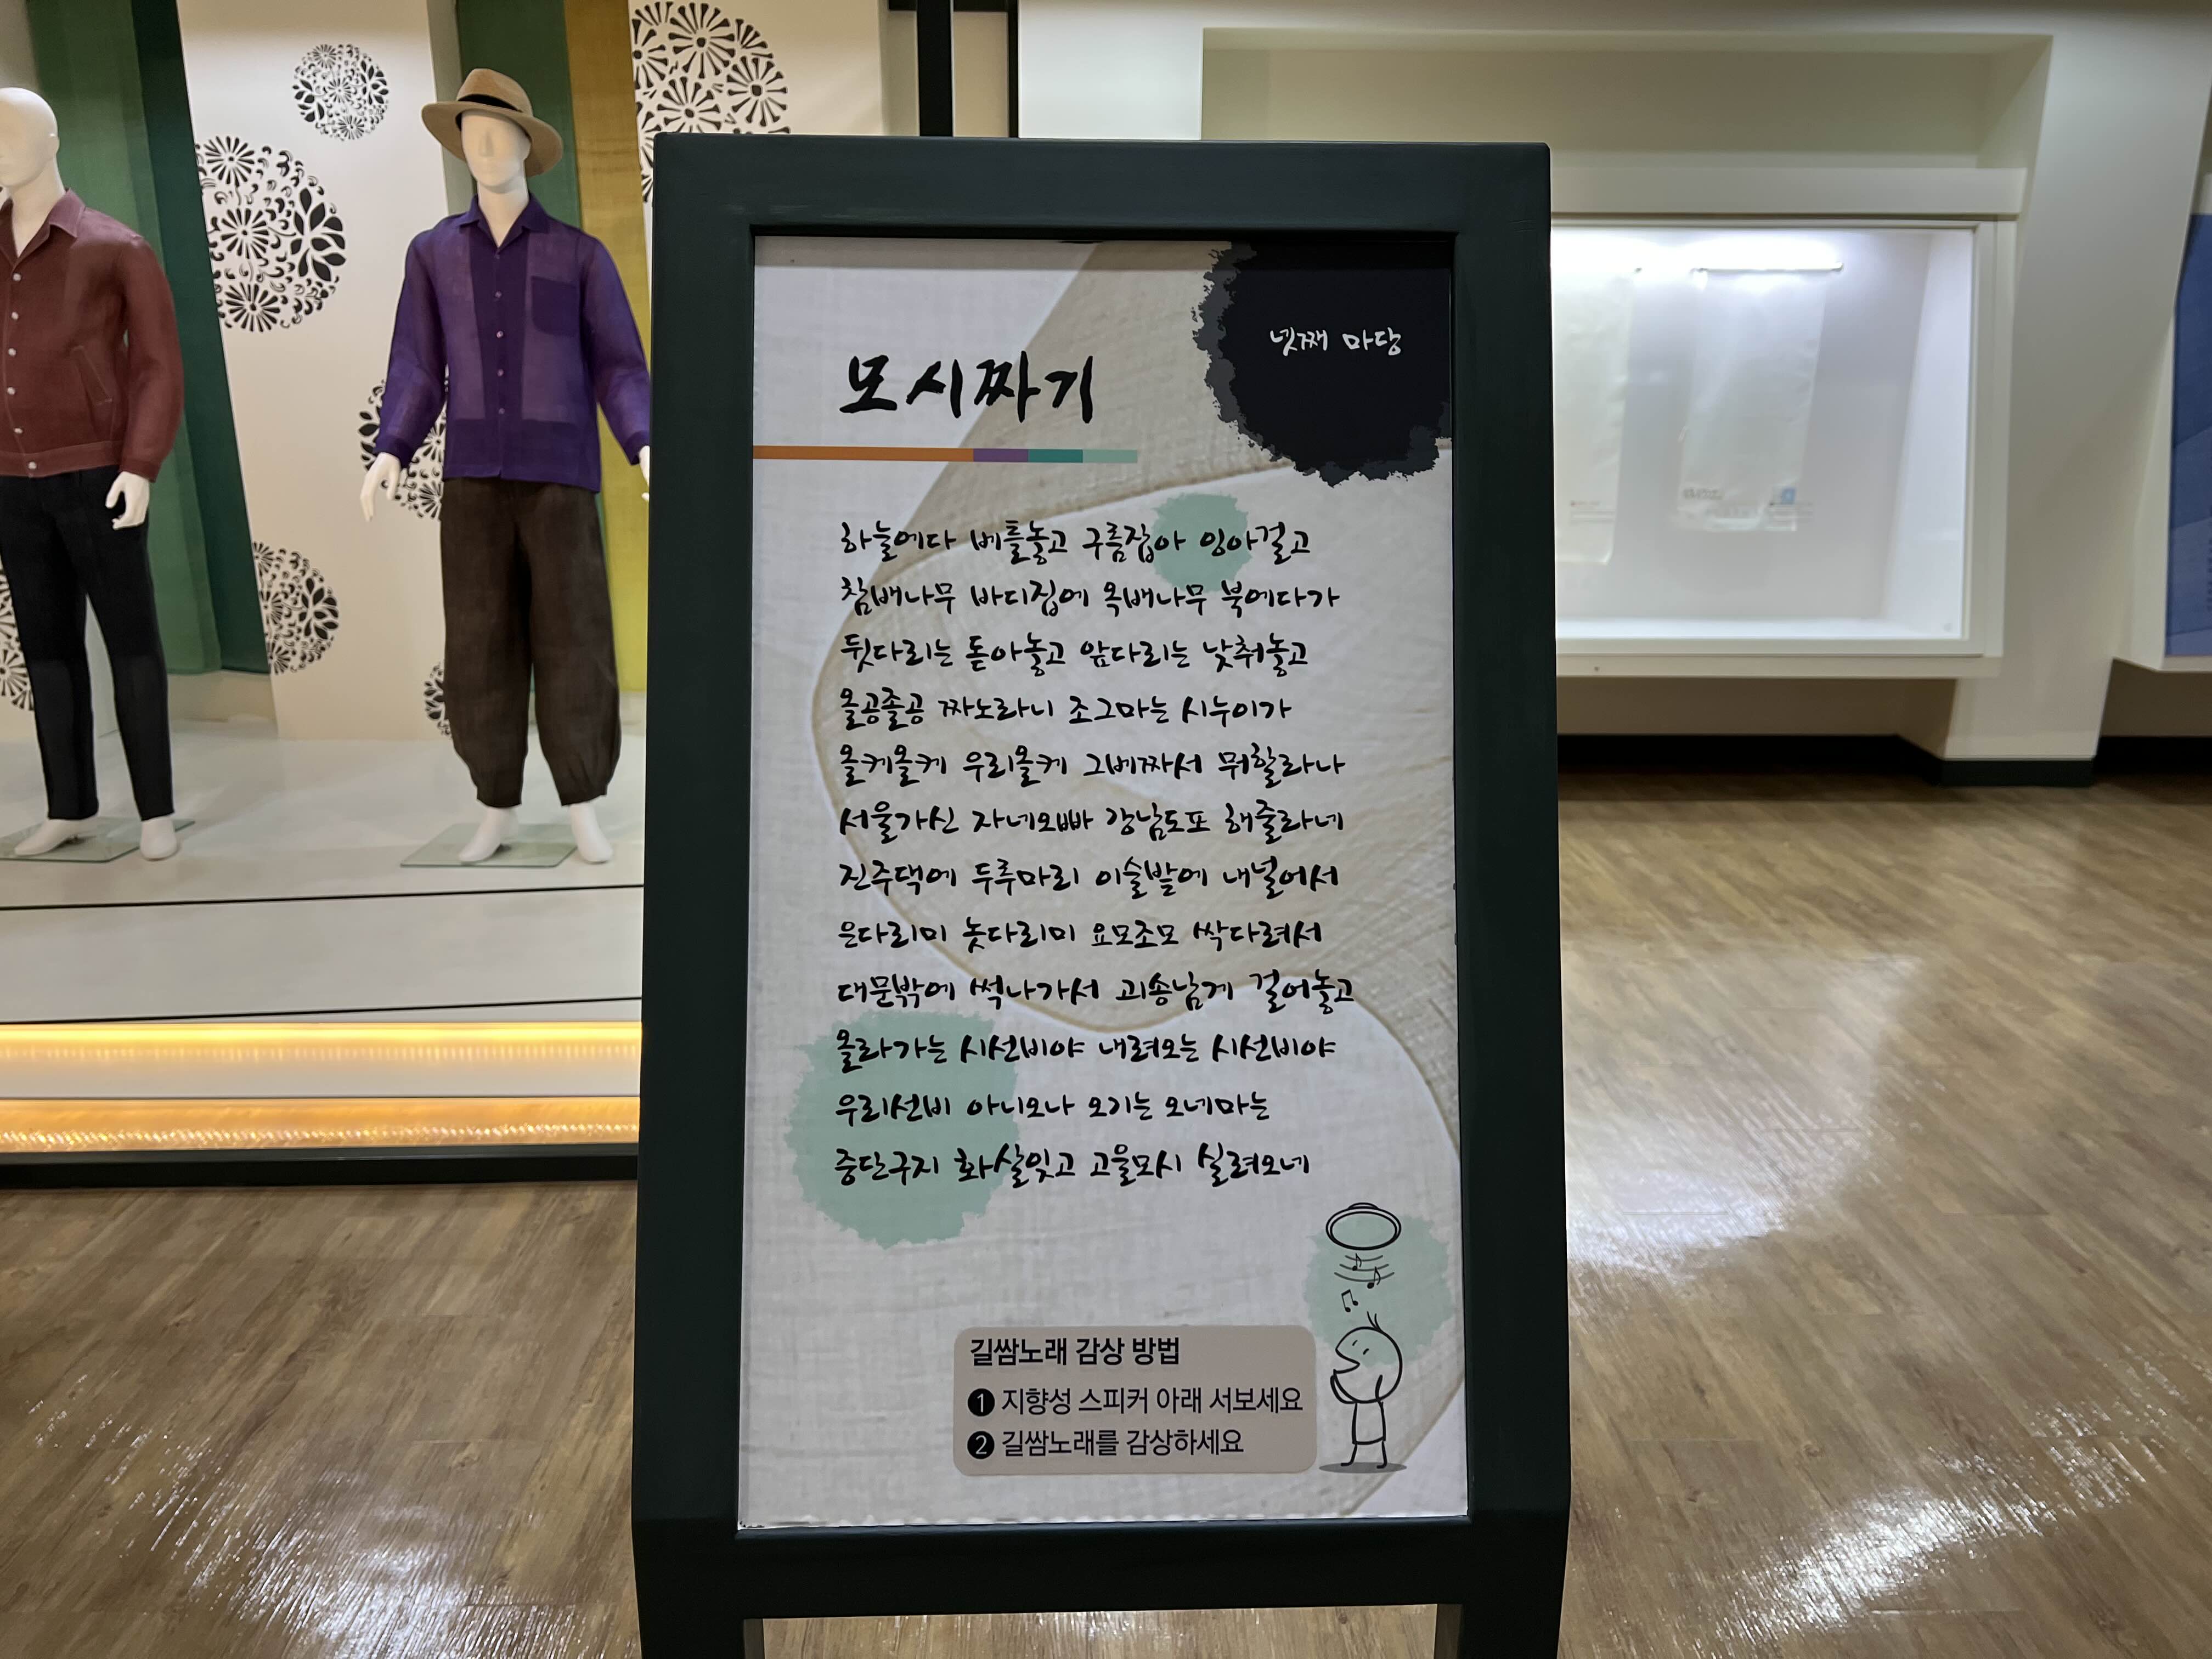 넷째 마당
모시짜기
하늘에다 베틀놓고 구름잡아 잉아걸고
참배나무 바디집에 옥배나무 북에다가
뒷다리는 돋아놓고 앞다리는 낮춰놓고
올공졸공 짜노라니 조그마는 시누이가
올케올케 우리올케 그베짜서 뭐할라나
서울가신 자네오빠 강남도포 해줄라네
진주댁에 두루마리 이슬밭에 내널어서
은다리미 놋다리미 요모조모 싹다려서
대문밖에 썩나가서 괴송남게 걸어놓고
올라가는 시선비야 내려오는 시선비야
우리선비 아니오나 오기는 오네마는
중단구지 화살잊고 고울모시 실려오네
길쌈노래 감상 방법
❶ 지향성 스피커 아래 서보세요
❷ 길쌈노래를 감상하세요